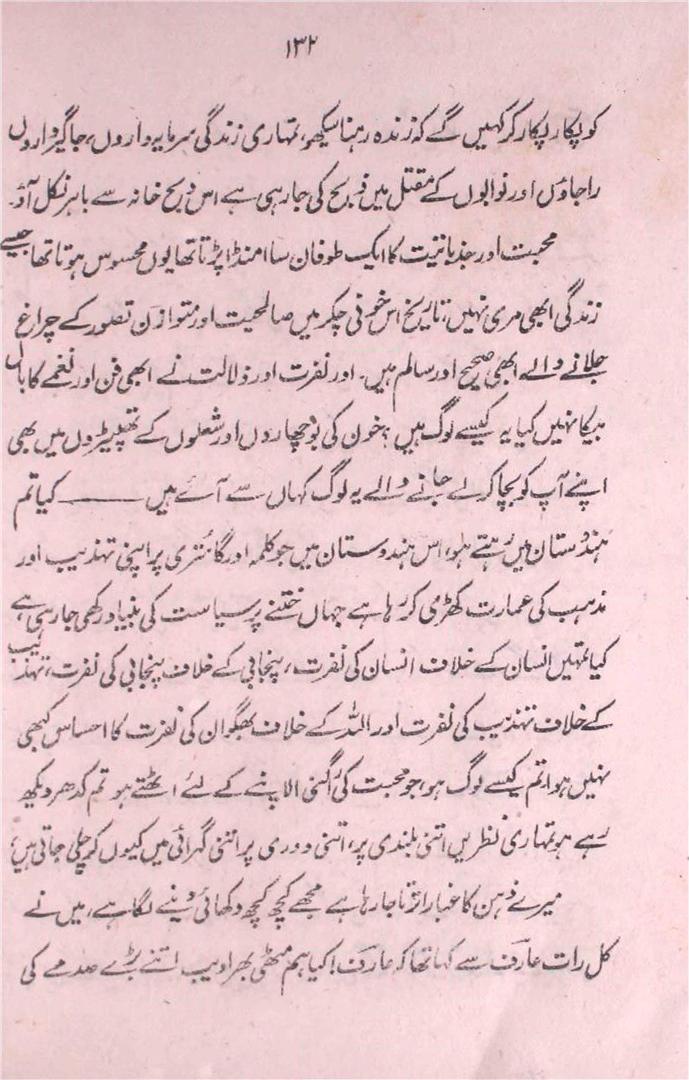 ۱۳۲
کو پکار پکار کر کہیں گے کہ زندہ رہنا سیکھو، تمہاری زندگی سرمایہ داروں، جاگیرداروں
راجاؤں اور نوابوں کے مقتل میں ذبح کی جا رہی ہے اس ذبح خانہ سے باہر نکل آؤ۔
محبت اور جذباتیت کا ایک طوفان سا امنڈا پڑتا تھا یوں محسوس ہوتا تھا جیسے
زندگی ابھی مری نہیں، تاریخ اس خونی چکر میں صالحیت اور متوازن تصور کے چراغ
جلانے والے ابھی صحیح اور سالم ہیں۔ اور نفرت اور ذلالت نے ابھی فن اور نغمے کا بال
بیکا نہیں کیا یہ کیسے لوگ ہیں؟ خون کی بوچھاروں اور شعلوں کے تھپیڑوں میں بھی
اپنے آپ کو بچا کر لے جانے والے یہ لوگ کہاں سے آئے ہیں ——— کیا تم
ہندوستان میں رہتے ہو، اس ہندوستان میں جو کلمہ اور گائتری پر اپنی تہذیب اور
مذہب کی عمارت کھڑی کر رہا ہے جہاں ختنے پر سیاست کی بنیاد رکھی جا رہی ہے
کیا تمہیں انسان کے خلاف انسان کی نفرت، پنجابی کے خلاف پنجابی کی نفرت، تہذیب
کے خلاف تہذیب کی نفرت اور اللہ کے خلاف بھگوان کی نفرت کا احساس کبھی
نہیں ہوا، تم کیسے لوگ ہو، جو محبت کی اگنی الاپنے کے لئے اٹھتے ہو تم کدھر دیکھ
رہے ہو تمہاری نظریں اتنی بلندی پر، اتنی دوری پر اتنی گہرائی میں کیوں کر چلی جاتی ہیں؟
میرے ذہن کا غبار اڑتا جا رہا ہے مجھے کچھ کچھ دکھائی دینے لگا ہے، میں نے
کل رات عارف سے کہا تھا کہ عارف! کیا ہم مٹھی بھر ادیب اتنے بڑے صدمے کی